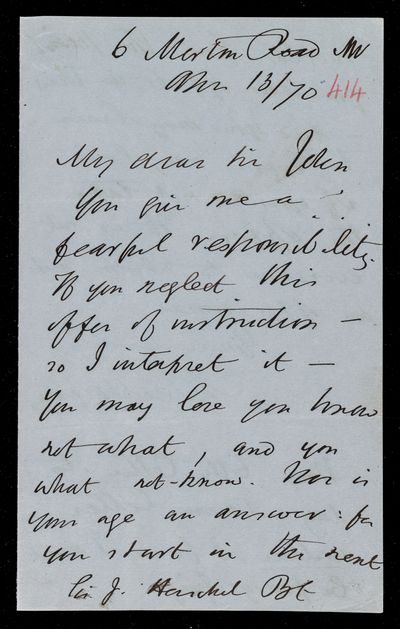 6 Merton Road NW
Apr 13/70 414
My dear Sir John
You give me a
fearful responsibility.
If you neglect this
offer of instruction —
so I interpret it —
You may lose you know
not what, and you
what not-know. Nor is
your age an answer: for
you start in the next
Sir J. Herschel Bt